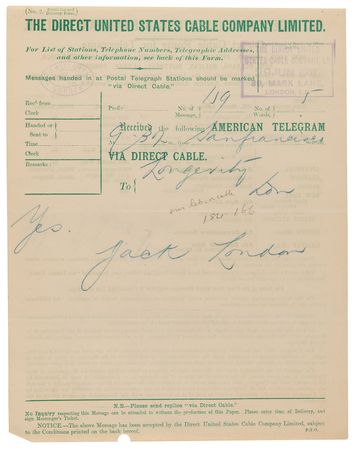 THE DIRECT UNITED STATES CABLE COMPANY LIMITED.
For List of Stations, Telephone Numbers, Telegraphic Addresses,
and other information, see back of this Form.
Messages handed in at Postal Telegraph Stations should be marked
"via Direct Cable."
Rec'd from
Clerk
Handed or
Sent to
Time
Clerk
Remarks:
Prefix
No. of
Message,
19
No. of
Words,
5
Received the following AMERICAN TELEGRAM
9.32 Sanfrancisco
VIA DIRECT CABLE.
To Longevity
Ldn
Yes.
Jack London
N.B.—Please send replies "via Direct Cable."
No Inquiry respecting this Message can be attended to without the production of this Paper. Please enter time of Delivery, and
sign Messenger's Ticket.
NOTICE.—The above Message has been accepted by the Direct United States Cable Company Limited, subject
to the Conditions printed on the back hereof.
P.T.O.